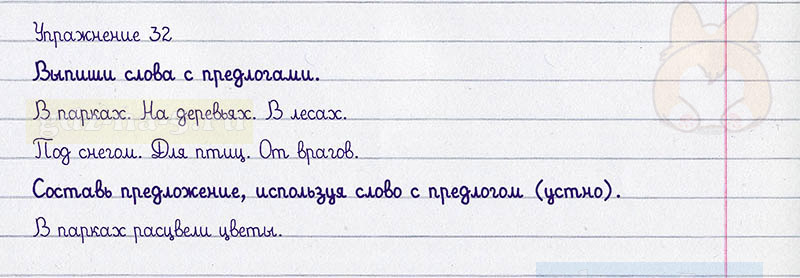 Упражнение 32
Выпиши слова с предлогами.
В парках. На деревьях. В лесах.
Под снегом. Для птиц. От врагов.
Составь предложение, используя слово с предлогом (устно).
В парках расцвели цветы.